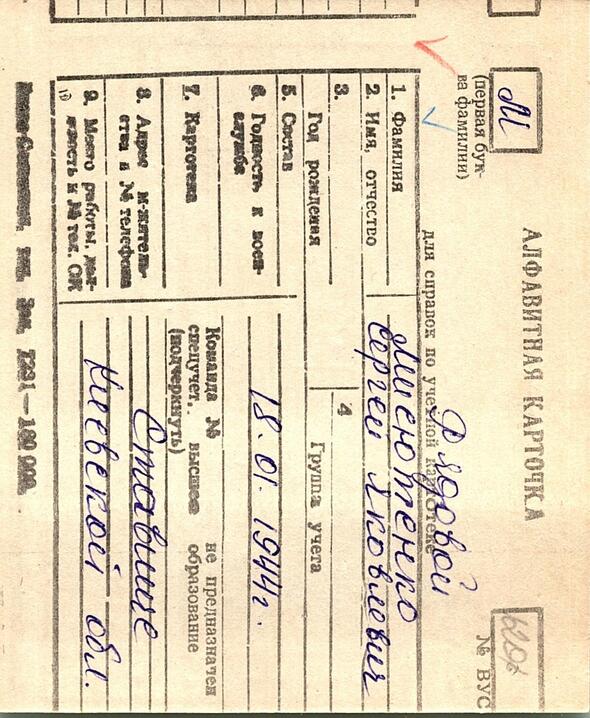 АЛФАВИТНАЯ КАРТОЧКА
для справок по учетной картотеке
№ ВУС
М
(первая бук-
ва фамилии)
Рядовой
1. Фамилия
2. Имя, отчество Сергей Яковлевич
3.
Год рождения
4
Группа учета
5. Состав
6. Годность к воен-
службе
18.01.1944г.
7. Картотека
Команда № не предназначен
спецучет, высшее образование
(подчеркнуть)
8. Адрес м-житель-
ства и № телефона
Ставище
9. Место работы, дол-
жность и № тел. ОК
Киевской обл.
тип. Зак. 7281—160 000.